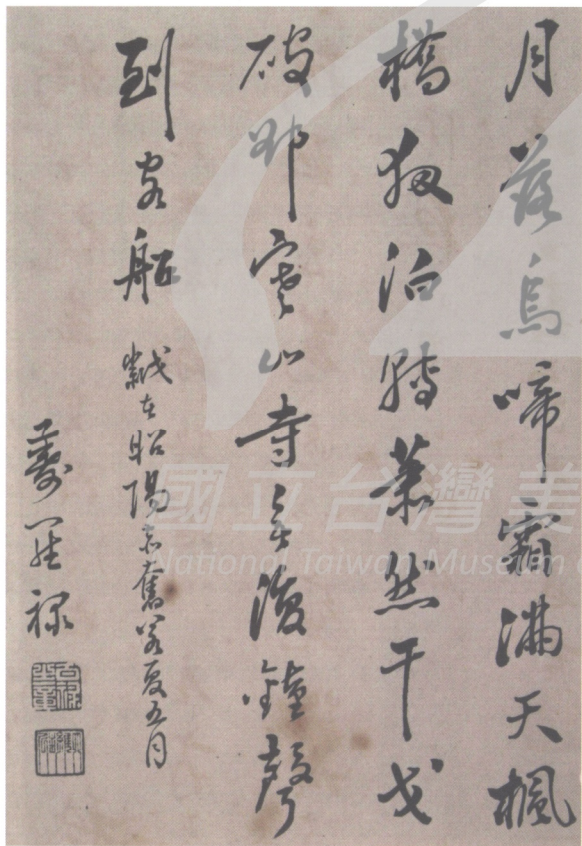 月落烏啼霜滿天楓
橋夜泊轉蕭然干戈
破却寒山寺無復鐘聲
到客船
歲在昭陽赤奮若夏五月
壽
國立台灣美
National Taiwan Museum